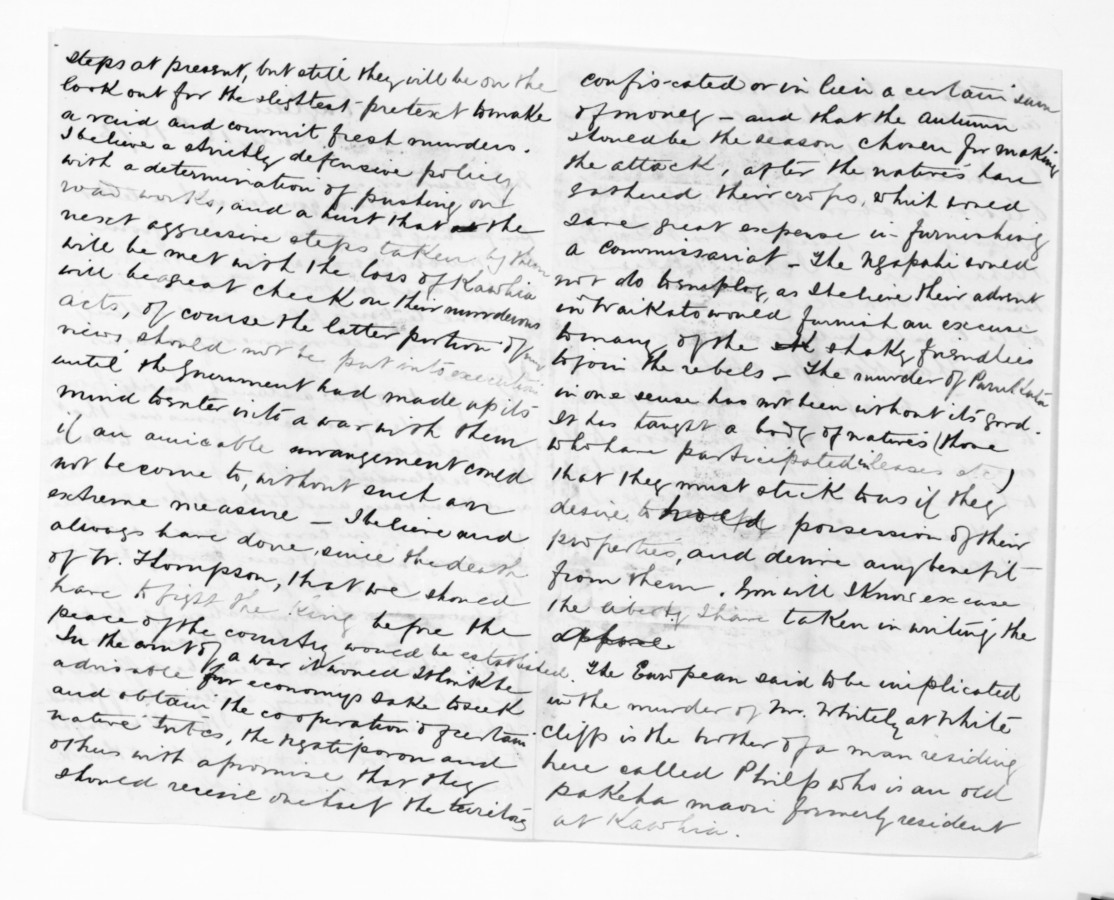 steps at present, but still they will be on the
look out for the slightest pretext to make
a raid and commit fresh murders.
I believe a strictly defensive policy
with a determination of pushing on
road works, and a hint that the
next aggressive steps taken by them
will be met with the loss of Kawhia
will be a great check on their murderous
acts, of course the latter portion of my
views should not be put into execution
until the Government had made up its
mind to enter into a war with them
if an amicable arrangement could
not be come to, without such an
extreme measure — I believe and
always have done, since the death
of W. Thompson, that we should
have to fight the King before the
peace of the country would be established.
In the event of a war it would I think be
advisable for economys sake to seek
and obtain the cooperation of certain
native tribes, the Ngatiporou and
others with a promise that they
should receive one half the territory
confis-cated or in lieu a certain sum
of money — and that the autumn
should be the season chosen for making
the attack, after the natives have
gathered their crops, which would
save great expense in furnishing
a commissariat — The Ngapuhi would
not do to employ, as I believe their advent
in Waikato would furnish an excuse
to many of the shaky friendlies
to join the rebels — The murder of
in one sense has not been without its good.
It has taught a body of natives (those
who have participated in leases etc)
that they must stick to us if they
desire to hold possession of their
properties, and derive any benefit
from them. You will I know excuse
the liberty I have taken in writing the
above
The European said to be implicated
in the murder of Mr. Whitely at White
cliffs is the brother of a man residing
here called Philps who is an old
pakeha maori formerly resident
at Kawhia.